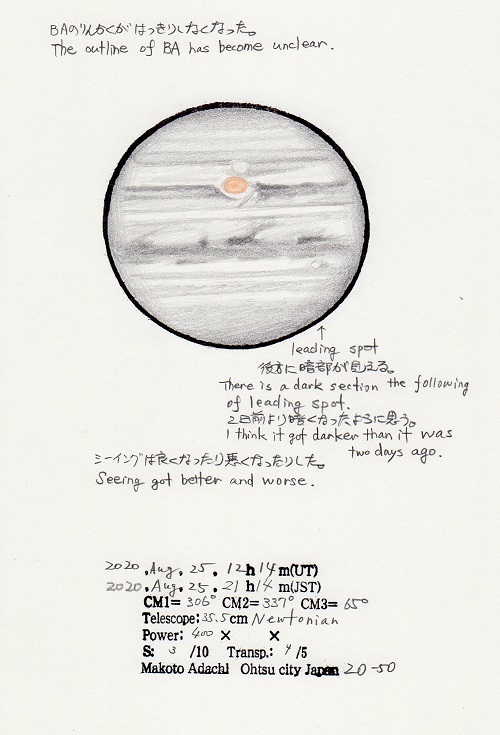 BAのりんかくがはっきりしなくなった。
The outline of BA has become unclear.
↑
leading spot
後方に暗部が見える。
There is a dark section the following
of leading spot.
2日前より暗くなったように思う。
I think it got darker than it was
two days ago.
シーイングは良くなったり悪くなったりした。
Seeing got better and worse.
2020.Aug.25.12h14m(UT)
2020.Aug.25.21h14m(JST)
CM1=306° CM2=337° CM3=65°
Telescope:35.5cm Newtonian
Power:400 × ×
S: 3 /10 Transp.: 4 /5
Makoto Adachi Ohtsu city Japan 20-50